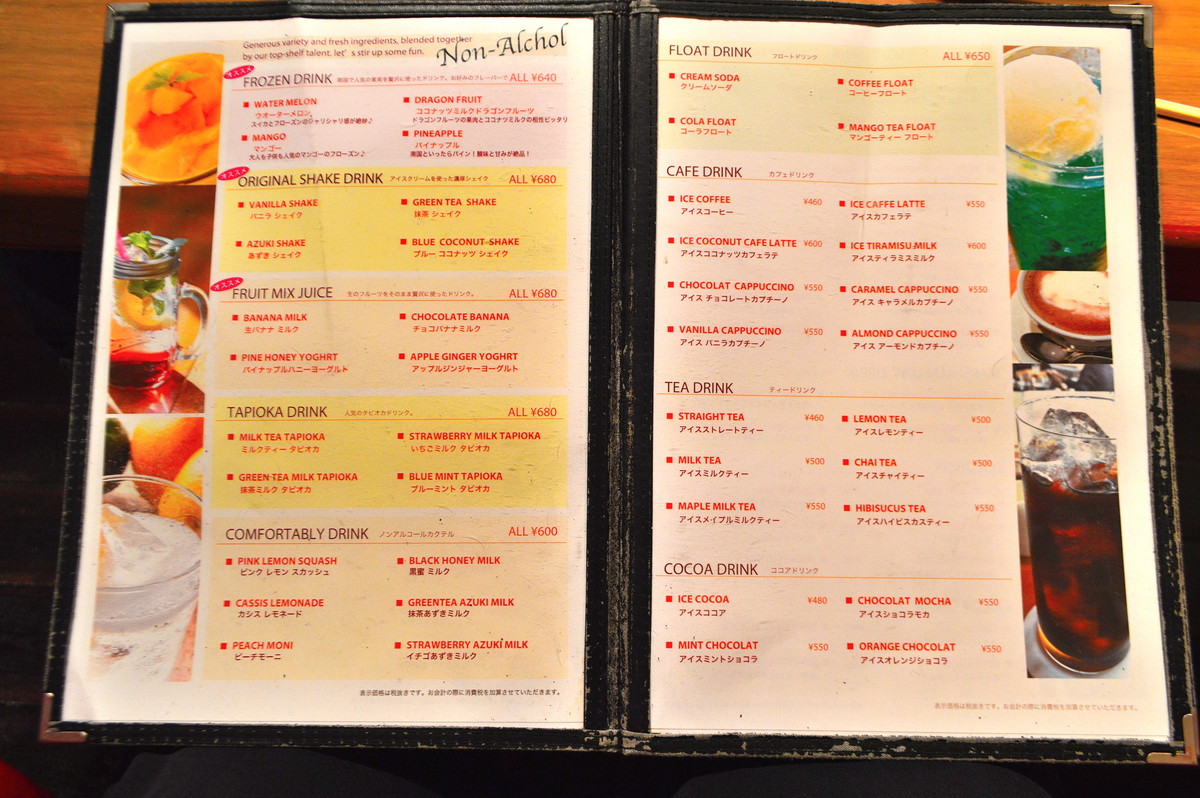 Generous variety and fresh ingredients, blended together
by our top-shelf talent. let's stir up some fun.
Non-Alchol
オススメ
FROZEN DRINK 南国で人気の果実を贅沢に使ったドリンク。お好みのフレーバーで ALL ¥640
WATER MELON
ウオーターメロン
スイカとフローズンのシャリシャリ感が絶妙♪
DRAGON FRUIT
ココナッツミルクドラゴンフルーツ
ドラゴンフルーツの果肉とココナツミルクの相性ピッタリ
MANGO
マンゴー
大人を子供も人気のマンゴーのフローズン♪
PINEAPPLE
パイナップル
南国といったらパイン!酸味と甘みが絶品!
オススメ
ORIGINAL SHAKE DRINK アイスクリームを使った濃厚シェイク ALL ¥680
VANILLA SHAKE
バニラ シェイク
GREEN TEA SHAKE
抹茶 シェイク
AZUKI SHAKE
あずき シェイク
BLUE COCONUT SHAKE
ブルー ココナッツ シェイク
オススメ
FRUIT MIX JUICE 生のフルーツをそのまま贅沢に使ったドリンク。 ALL ¥680
BANANA MILK
生バナナ ミルク
CHOCOLATE BANANA
チョコバナナミルク
PINE HONEY YOGHRT
パイナップルハニーヨーグルト
APPLE GINGER YOGHRT
アップルジンジャーヨーグルト
TAPIOKA DRINK 人気のタピオカドリンク。 ALL ¥680
MILK TEA TAPIOKA
ミルクティー タピオカ
STRAWBERRY MILK TAPIOKA
いちごミルク タピオカ
GREEN TEA MILK TAPIOKA
抹茶ミルク タピオカ
BLUE MINT TAPIOKA
ブルーミント タピオカ
COMFORTABLY DRINK ノンアルコールカクテル ALL ¥600
PINK LEMON SQUASH
ピンク レモン スカッシュ
BLACK HONEY MILK
黒蜜 ミルク
CASSIS LEMONADE
カシス レモネード
GREENTEA AZUKI MILK
抹茶あずきミルク
PEACH MONI
ピーチモーニ
STRAWBERRY AZUKI MILK
イチゴあずきミルク
表示価格は税抜きです。お会計の際に消費税を加算させていただきます。
FLOAT DRINK フロートドリンク ALL ¥650
CREAM SODA
クリームソーダ
COFFEE FLOAT
コーヒーフロート
COLA FLOAT
コーラフロート
MANGO TEA FLOAT
マンゴーティー フロート
CAFE DRINK カフェドリンク
ICE COFFEE ¥460
アイスコーヒー
ICE CAFFE LATTE ¥550
アイスカフェラテ
ICE COCONUT CAFE LATTE ¥600
アイスココナッツカフェラテ
ICE TIRAMISU MILK ¥600
アイスティラミスミルク
CHOCOLAT CAPPUCCINO ¥550
アイス チョコレートカプチーノ
CARAMEL CAPPUCCINO ¥550
アイス キャラメルカプチーノ
VANILLA CAPPUCCINO ¥550
アイス バニラカプチーノ
ALMOND CAPPUCCINO ¥550
アイス アーモンドカプチーノ
TEA DRINK ティードリンク
STRAIGHT TEA ¥460
アイスストレートティー
LEMON TEA ¥500
アイスレモンティー
MILK TEA ¥500
アイスミルクティー
CHAI TEA ¥500
アイスチャイティー
MAPLE MILK TEA ¥550
アイスメイプルミルクティー
HIBISUCUS TEA ¥550
アイスハイビスカスティー
COCOA DRINK ココアドリンク
ICE COCOA ¥480
アイスココア
CHOCOLAT MOCHA ¥550
アイスショコラモカ
MINT CHOCOLAT ¥550
アイスミントショコラ
ORANGE CHOCOLAT ¥550
アイスオレンジショコラ
表示価格は税抜きです。お会計の際に消費税を加算させていただきます。